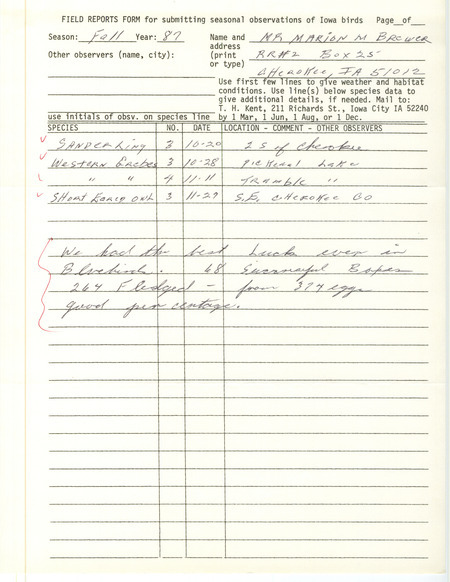 FIELD REPORTS FORM for submitting seasonal observations of Iowa birds Page of
Season: Fall Year: 87 Name and MR MARION M BREWER
address
Other observers (name, city): (print RR#2 Box 25
or type) CHEROKEE, IA 51012
Use first few lines to give weather and habitat
conditions. Use line(s) below species data to
give additional details, if needed. Mail to:
T. H. Kent, 211 Richards St., Iowa City IA 52240
use initials of obsv. on species line by 1 Mar, 1 Jun, 1 Aug, or 1 Dec.
SPECIES NO. DATE LOCATION - COMMENT - OTHER OBSERVERS
SANDERLING 3 10-20 2 S of Cherokee
WESTERN GREBES 3 10-28 Pickeral Lake
" " 4 11-11 TRUMBLE "
SHORT EARED OWL 3 11-29 S.E. CHEROKEE CO
We had the best Luck ever in
Bluebirds. 68 Successful Boxes
264 Fledged - from 374 eggs
good percentage.